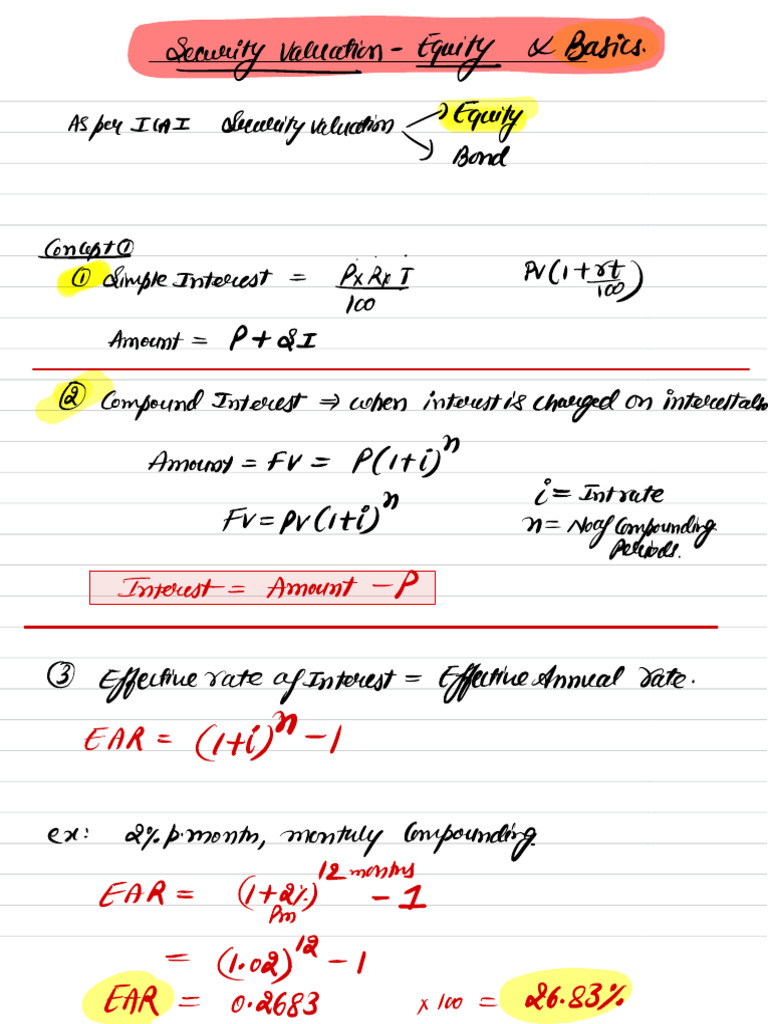 Security Valuation - Equity & Basics.
As per ICAI Security Valuation Equity
Bond
Concept ①
① Simple Interest = P x R x T / 100 PV(1 + rt/100)
Amount = P + SI
② Compound Interest ⇒ when interest is charged on interest also
Amount = FV = P(1+i)^n
i = Int rate
FV = PV(1+i)^n
n = No of Compounding
Periods.
Interest = Amount - P
③ Effective rate of Interest = Effective Annual rate.
EAR = (1+i)^n - 1
ex: 2% p.month, monthly Compounding.
EAR = (1+2%)^12 months - 1
Pm
= (1.02)^12 - 1
EAR = 0.2683 x 100 = 26.83%